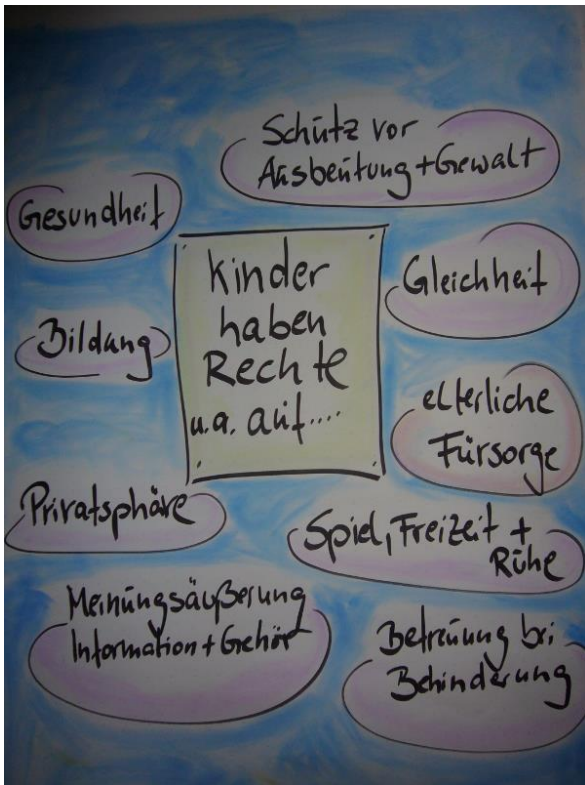 Schutz vor
Ausbeutung+Gewalt
Gesundheit
Kinder
haben
Rechte
u.a. auf....
Gleichheit
Bildung
elterliche
Fürsorge
Privatsphäre
Spiel, Freizeit +
Ruhe
Meinungsäußerung
Information+Gehör
Betreuung bei
Behinderung